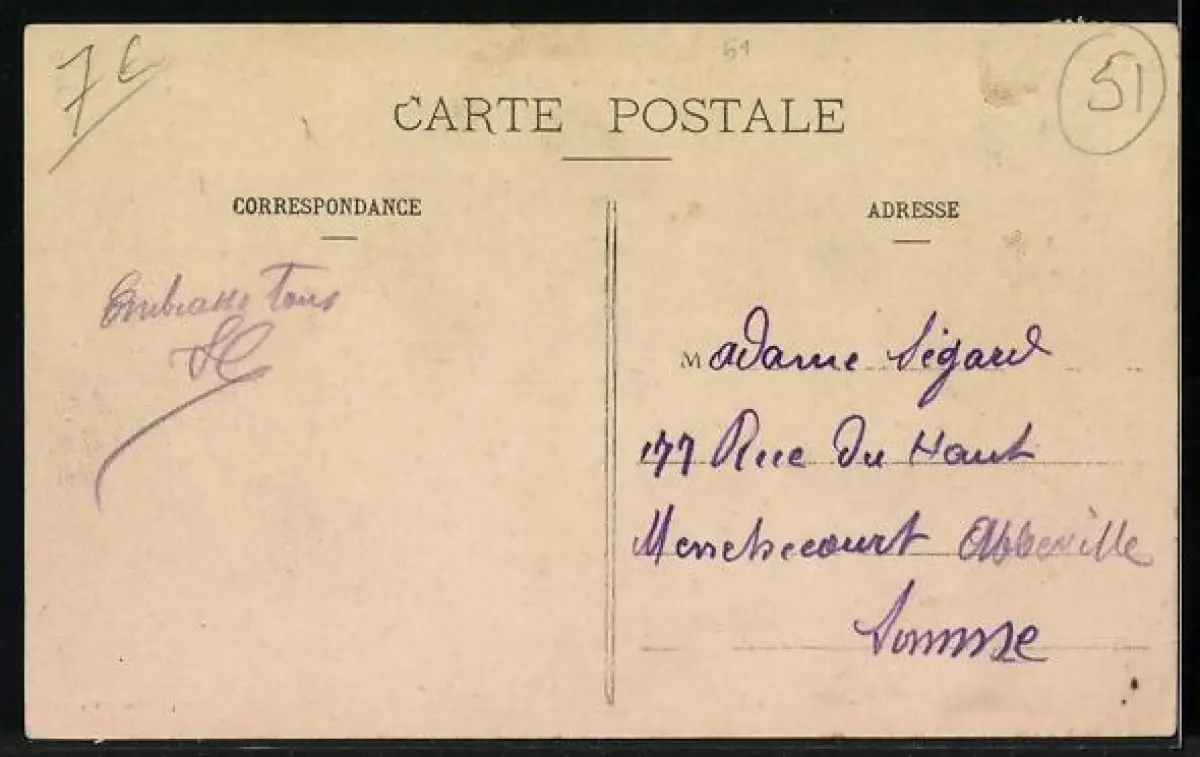 7€
51
51
CARTE POSTALE
CORRESPONDANCE
ADRESSE
Embrasse Tous
Madame Ségard
177 Rue Du Haut
Menchecourt Abbeville
Somme